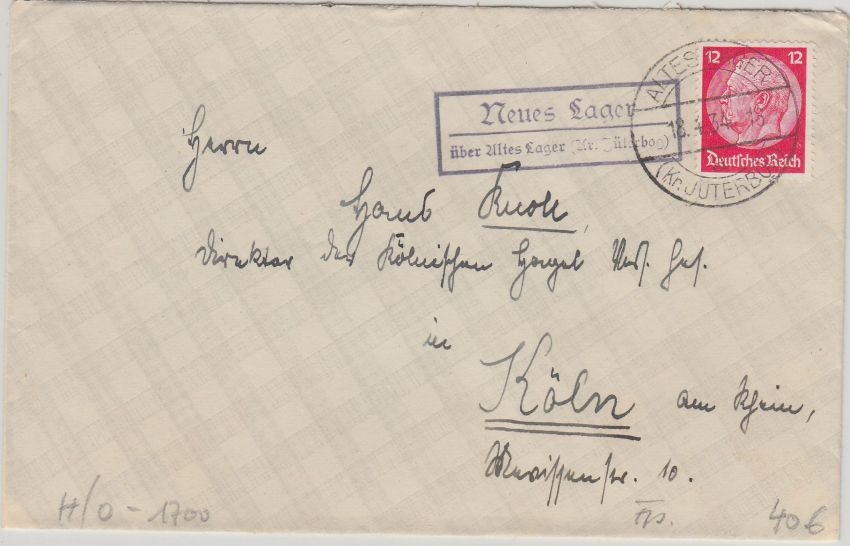 12 12
Deutsches Reich
ALTES LAGER
18.4.34. 15
(Kr. JÜTERBOG)
Neues Lager
über Altes Lager (Kr. Jüterbog)
Herrn
Hans Knoll,
Direktor der Kölnischen Hagel Vers. Ges.
in
Köln am Rhein,
Mevissenstr. 10.
H/0 - 1700
40 €